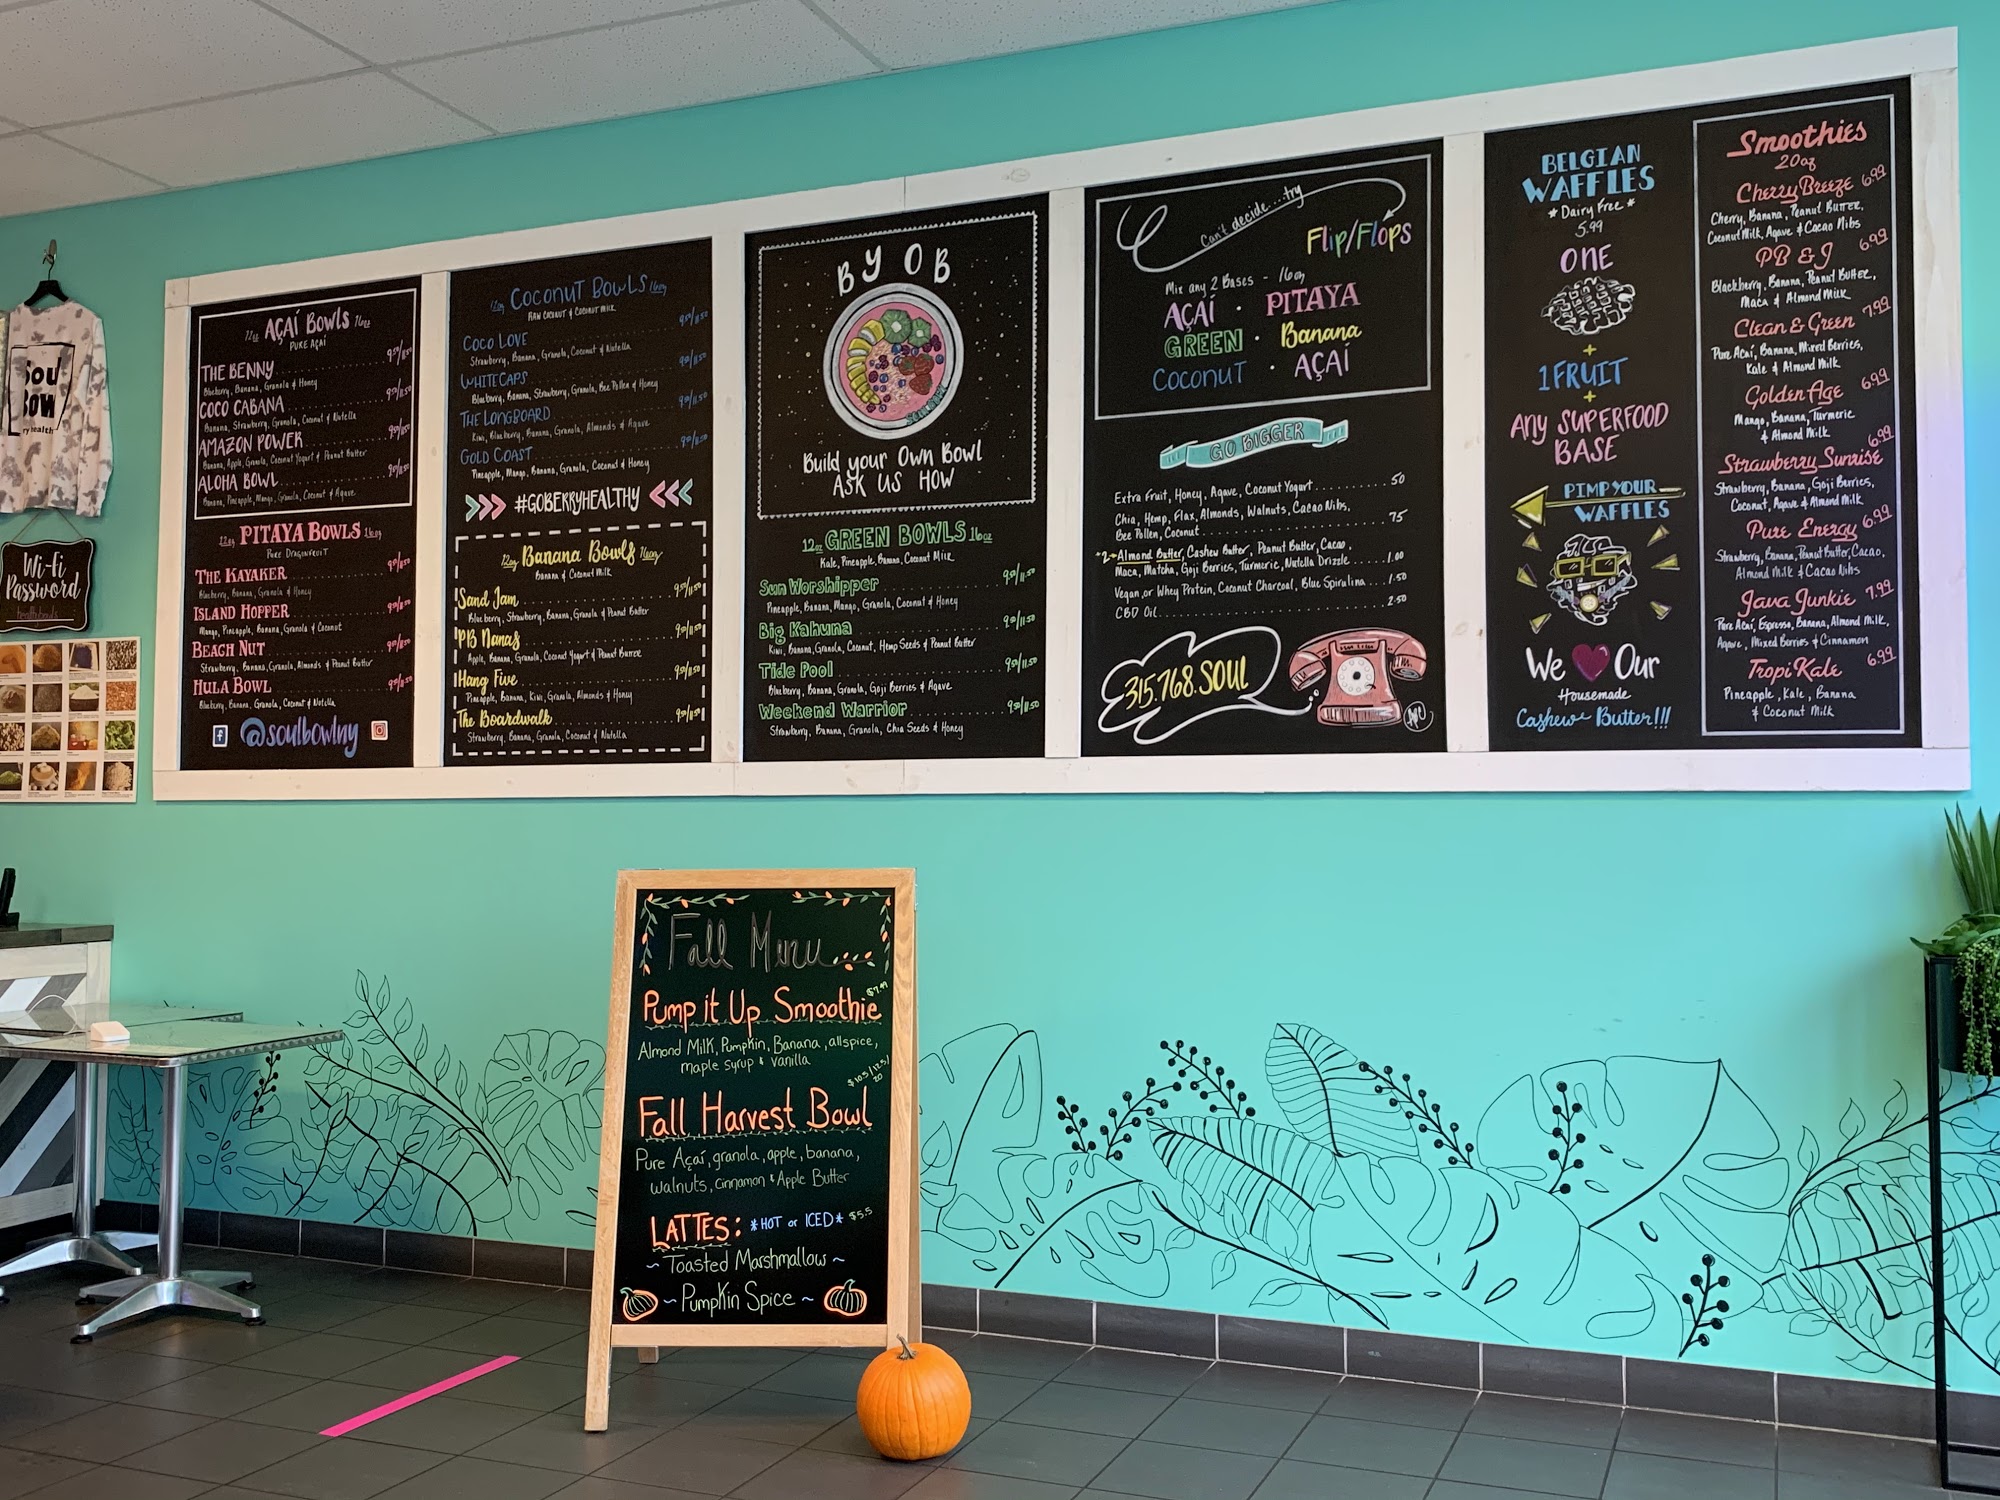 Soul
Bowl
Wi-Fi
Password
12oz AÇAÍ BOWLS 16oz
PURE AÇAÍ
THE BENNY 9.50/11.50
Blueberry, Banana, Granola & Honey
COCO CABANA 9.50/11.50
Banana, Strawberry, Granola, Coconut & Nutella
AMAZON POWER 9.50/11.50
Banana, Apple, Granola, Coconut Yogurt & Peanut Butter
ALOHA BOWL 9.50/11.50
Banana, Pineapple, Mango, Granola, Coconut & Agave
12oz PITAYA BOWLS 16oz
PURE DRAGONFRUIT
THE KAYAKER 9.50/11.50
Blueberry, Banana, Granola & Honey
ISLAND HOPPER 9.50/11.50
Mango, Pineapple, Banana, Granola & Coconut
BEACH NUT 9.50/11.50
Strawberry, Banana, Granola, Almonds & Peanut Butter
HULA BOWL 9.50/11.50
Blueberry, Banana, Granola, Coconut & Nutella
@soulbowlny
12oz COCONUT BOWLS 16oz
RAW COCONUT & COCONUT MILK
COCO LOVE 9.50/11.50
Strawberry, Banana, Granola, Coconut & Nutella
WHITECAPS 9.50/11.50
Blueberry, Banana, Strawberry, Granola, Bee Pollen & Honey
THE LONGBOARD 9.50/11.50
Kiwi, Blueberry, Banana, Granola, Almonds & Agave
GOLD COAST 9.50/11.50
Pineapple, Mango, Banana, Granola, Coconut & Honey
>>> #GOBERRYHEALTHY <<<
12oz Banana Bowls 16oz
Banana & Coconut Milk
Sand Jam 9.50/11.50
Blueberry, Strawberry, Banana, Granola & Peanut Butter
PB Nanas 9.50/11.50
Apple, Banana, Granola, Coconut Yogurt & Peanut Butter
Hang Five 9.50/11.50
Pineapple, Banana, Kiwi, Granola, Almonds & Honey
The Boardwalk 9.50/11.50
Strawberry, Banana, Granola, Coconut & Nutella
BYOB
Build your Own Bowl
ASK US HOW
12oz GREEN BOWLS 16oz
Kale, Pineapple, Banana, Coconut Milk
Sun Worshipper 9.50/11.50
Pineapple, Banana, Mango, Granola, Coconut & Honey
Big Kahuna 9.50/11.50
Kiwi, Banana, Granola, Coconut, Hemp Seeds & Peanut Butter
Tide Pool 9.50/11.50
Blueberry, Banana, Granola, Goji Berries & Agave
Weekend Warrior 9.50/11.50
Strawberry, Banana, Granola, Chia Seeds & Honey
Can't decide....try
Flip/Flops
Mix any 2 Bases - 16oz
AÇAÍ · PITAYA
GREEN · Banana
COCONUT · AÇAÍ
GO BIGGER
Extra Fruit, Honey, Agave, Coconut Yogurt .50
Chia, Hemp, Flax, Almonds, Walnuts, Cacao Nibs,
Bee Pollen, Coconut .75
*2→Almond Butter, Cashew Butter, Peanut Butter, Cacao,
Maca, Matcha, Goji Berries, Turmeric, Nutella Drizzle 1.00
Vegan or Whey Protein, Coconut Charcoal, Blue Spirulina 1.50
CBD Oil 2.50
315.768.SOUL
BELGIAN
WAFFLES
*Dairy Free*
5.99
ONE
+
1 FRUIT
+
ANY SUPERFOOD
BASE
PIMP YOUR
WAFFLES
We Our
Housemade
Cashew Butter!!!
Smoothies
20oz
Cherry Breeze 6.99
Cherry, Banana, Peanut Butter,
Coconut Milk, Agave & Cacao Nibs
PB & J 6.99
Blackberry, Banana, Peanut Butter,
Maca & Almond Milk
Clean & Green 7.99
Pure Acaí, Banana, Mixed Berries,
Kale & Almond Milk
Golden Age 6.99
Mango, Banana, Turmeric
& Almond Milk
Strawberry Sunrise 6.99
Strawberry, Banana, Goji Berries,
Coconut, Agave & Almond Milk
Pure Energy 6.99
Strawberry, Banana, Peanut Butter, Cacao,
Almond Milk & Cacao Nibs
Java Junkie 7.99
Pure Acaí, Espresso, Banana, Almond Milk,
Agave, Mixed Berries & Cinnamon
TropiKale 6.99
Pineapple, Kale, Banana
& Coconut Milk
Fall Menu...
Pump it Up Smoothie $7.49
Almond Milk, Pumpkin, Banana, allspice,
maple syrup & vanilla
$10.5/12.5/
20
Fall Harvest Bowl
Pure Açaí, granola, apple, banana,
walnuts, cinnamon & Apple Butter
LATTES: *HOT or ICED* $5.5
~ Toasted Marshmallow ~
~ Pumpkin Spice ~